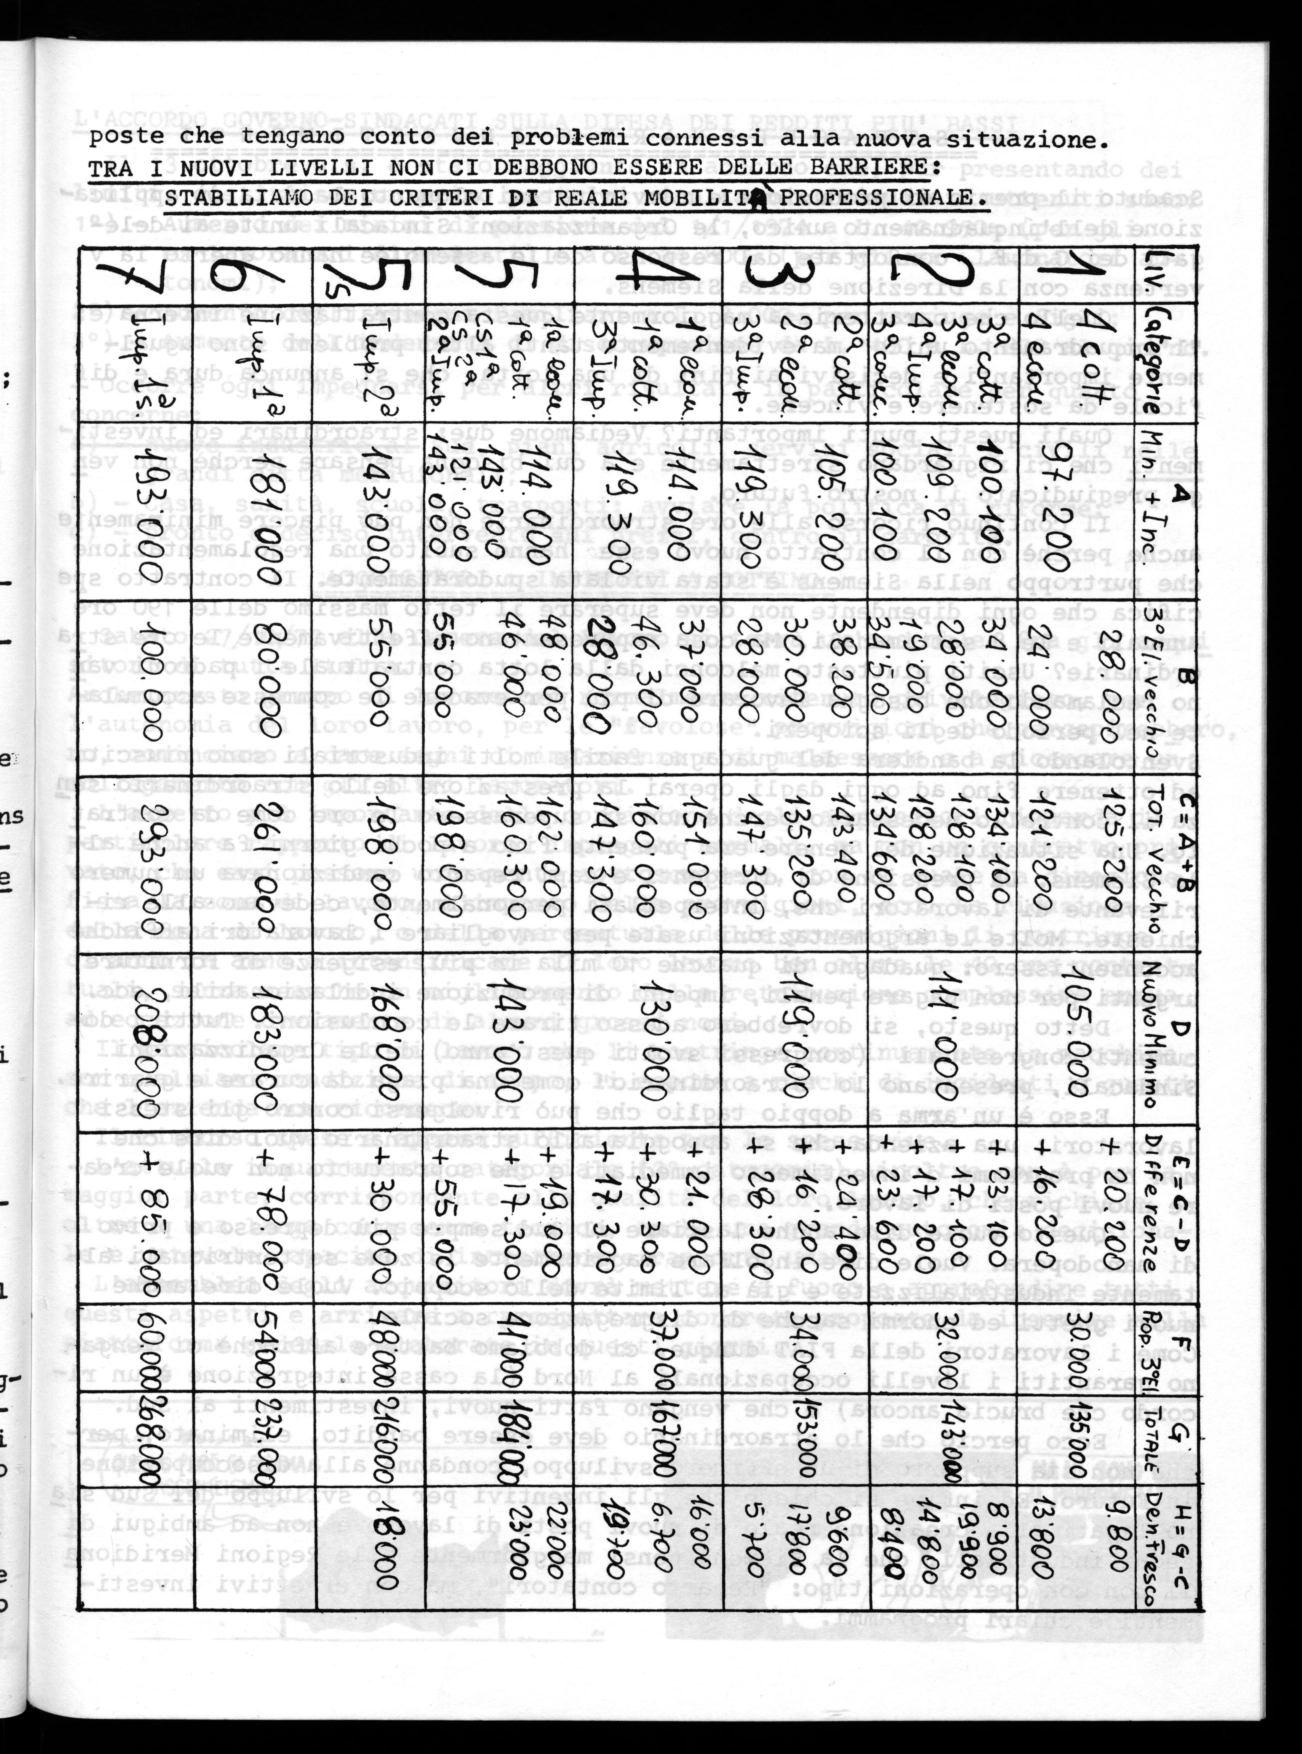 poste che tengano conto dei problemi connessi alla nuova situazione.
TRA I NUOVI LIVELLI NON CI DEBBONO ESSERE DELLE BARRIERE:
STABILIAMO DEI CRITERI DI REALE MOBILITÀ PROFESSIONALE.
A B C=A+B D E=C-D F G H=G-C
LIV Categorie Min. + Inc. 3°E. Vecchio TOT. Vecchio Nuovo Minimo Differenze Prop. 3°El. TOTALE Den.fresco
1 4 cott 97.200 28.000 125.200 105.000 + 20.200 30.000 135.000 9.800
4 econ 24.000 121.200 + 16.200 13.800
2 3ª cott. 100.100 34.000 134.100 + 23.100 8.900
3ª econ. 28.000 128.100 + 17.100 19.900
4ª Imp. 109.200 19.000 128.200 111.000 + 17.200 32.000 143.000 14.800
3ª com. 100.100 34.500 134.600 + 23.600 8400
3 2ª cott. 105.200 38.200 143.400 + 24.400 9.600
2ª econ. 30.000 135.200 119.000 + 16.200 34.000 153.000 17.800
3ª Imp. 119.300 28.000 147.300 + 28.300 5.700
4 1ª econ. 114.000 37.000 151.000 + 21.000 16.000
1ª cott. 46.300 160.300 130.000 + 30.300 37.000 167.000 6.700
3ª Imp. 119.300 28.000 147.300 + 17.300 19.700
5 1ª econ. 114.000 48.000 162.000 + 19.000 22.000
1ª cott. 46.000 160.300 143.000 + 17.300 41.000 184.000 23.000
CS 1ª 143.000
CS 2ª 121.000
2ª Imp. 143.000 55.000 198.000 + 55.000
5s Imp. 2ª 143.000 55.000 198.000 168.000 + 30.000 48.000 216.000 18.000
6 Imp. 1ª 181.000 80.000 261.000 183.000 + 78.000 54.000 237.000
7 Imp. 1ªs 193.000 100.000 293.000 208.000 + 85.000 60.000 268.000